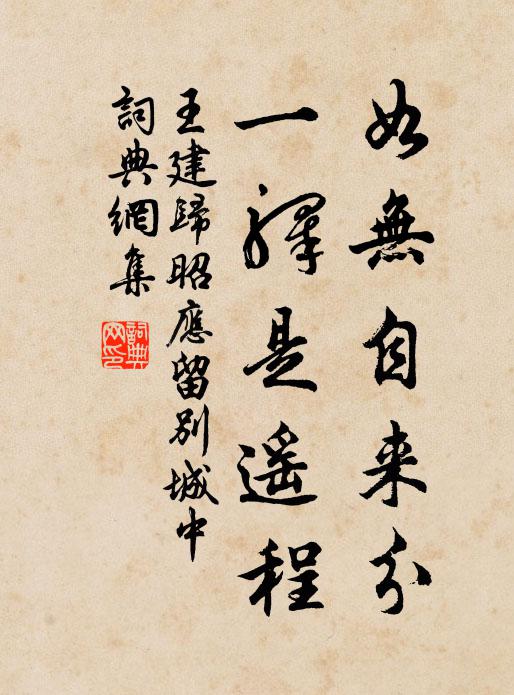 如無自来分
一驛是遥程
王建歸昭應留別城中
詞典網集
詞典
网印